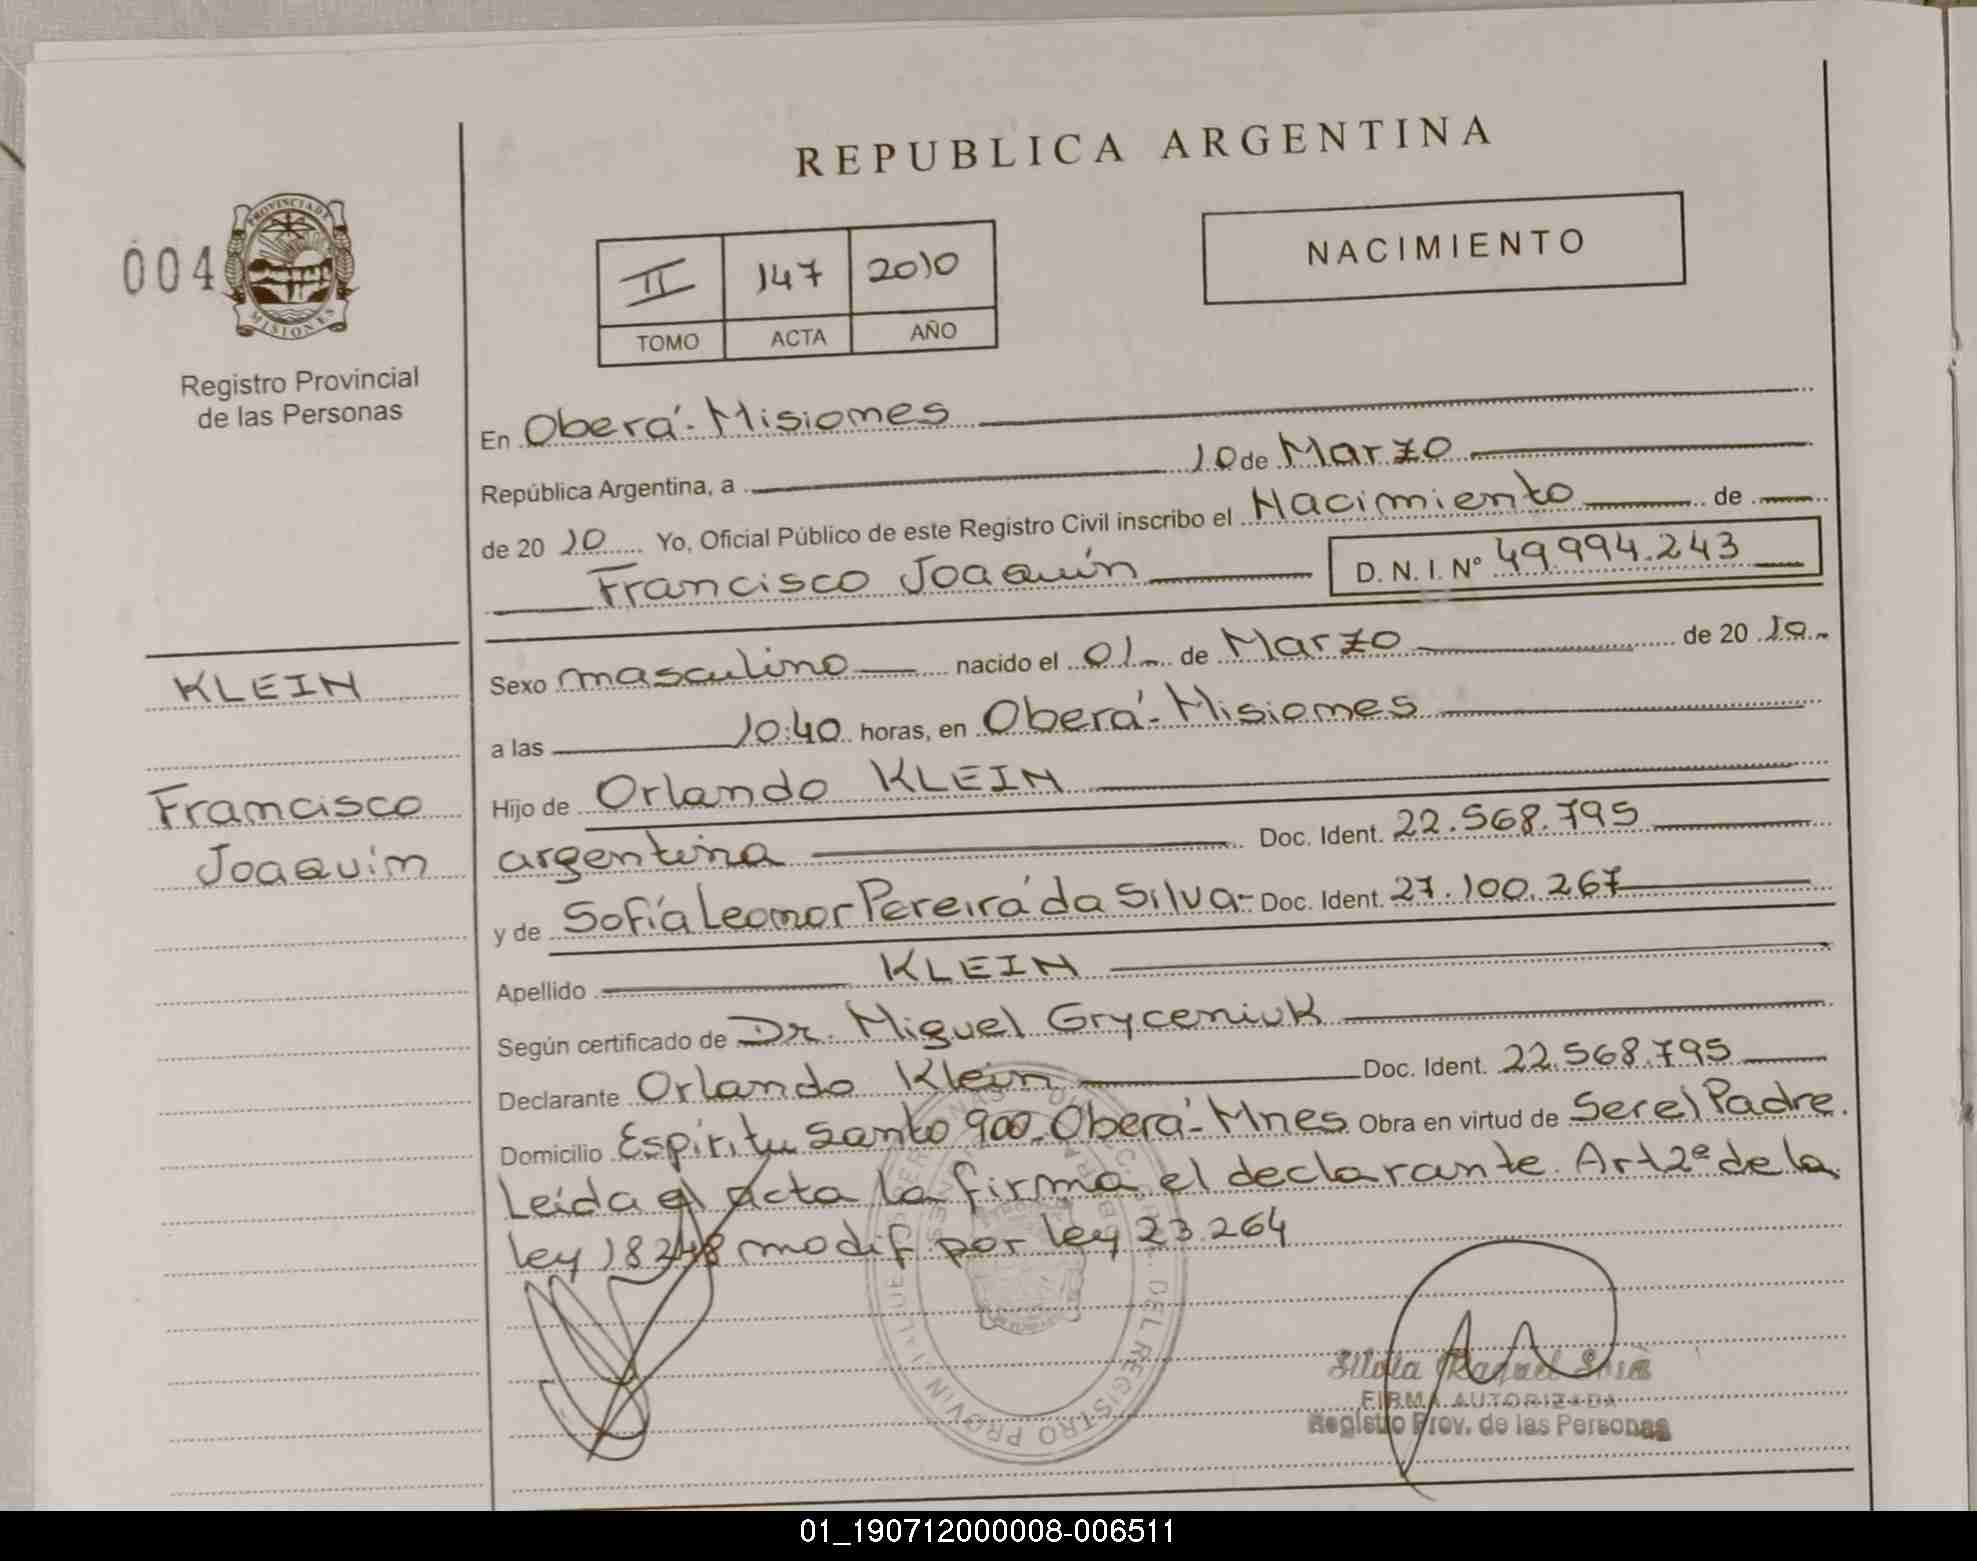 REPUBLICA ARGENTINA
NACIMIENTO
004
PROVINCIA DE
MISIONES
II 147 2010
TOMO ACTA AÑO
Registro Provincial
de las Personas
En Oberá - Misiones
República Argentina, a 10 de Marzo
de 20 10 Yo, Oficial Público de este Registro Civil inscribo el Nacimiento de
Francisco Joaquín D. N. I. Nº 49.994.243
KLEIN
Francisco
Joaquín
Sexo masculino nacido el 01 de Marzo de 20 10
a las 10:40 horas, en Oberá - Misiones
Hijo de Orlando KLEIN
argentina Doc. Ident. 22.568.795
y de Sofía Leonor Pereira da Silva - Doc. Ident. 27.100.267
Apellido KLEIN
Según certificado de Dr. Miguel Gryceniuk
Declarante Orlando Klein Doc. Ident. 22.568.795
Domicilio Espíritu Santo 900 - Oberá - Mnes Obra en virtud de Ser el Padre.
Leída el acta la firma el declarante. Art 2º de la
ley 18248 modif por ley 23.264
DEL REGISTRO PROVINCIAL
Raquel
FIRMA AUTORIZADA
Registro Prov. de las Personas
01_190712000008-006511